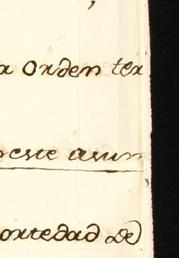 a orden ter
neste asum
ortedad de